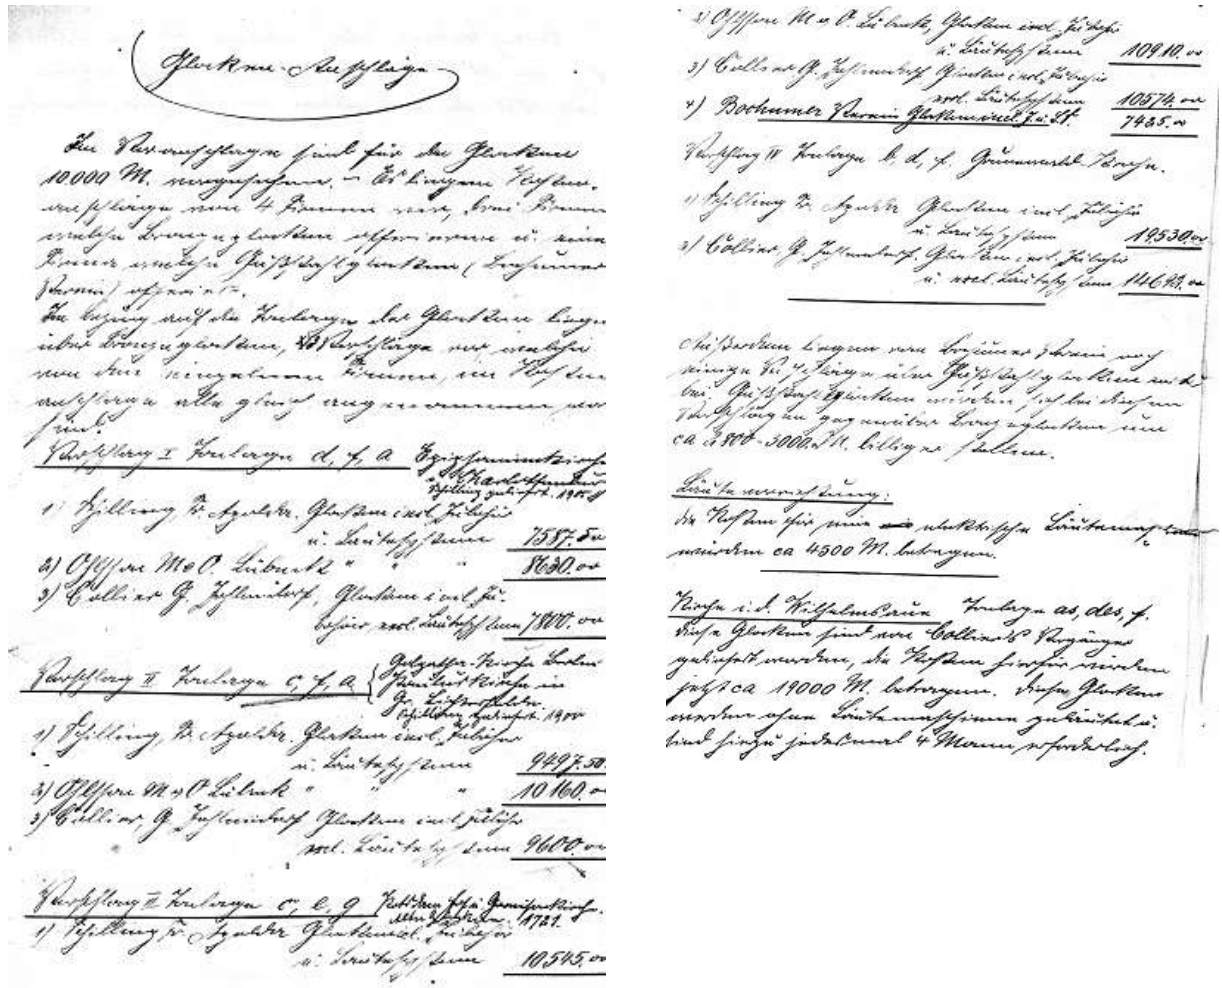 Glocken-Anschläge
Im Voranschlage sind für die Glocken
10.000 M. vorgesehen. – Es liegen Kosten-
anschläge von 4 Firmen vor, drei Firmen
welche Bronzeglocken offerieren u. eine
Firma welche Gußstahlglocken (Bochumer
Verein) offeriert.
In bezug auf die Tonlage der Glocken liegen
über Bronzeglocken, Vorschläge vor, welche
von den einzelnen Firmen, im Kosten
anschlage alle gleich angenommen
sind.
Vorschlag I Tonlage d, f, a Epiphanienkirche
Charlottenburg
Schilling geliefert. 1905
1) Schilling, Apolda. Glocken incl. Zubehör
u. Läutesystem 7587.50
2) Ohlsson M. v. O. Lübeck " " " 8630.00
3) Collier G. Zehlendorf, Glocken incl. Zu-
behör, excl. Läutesystem 7800.00
Vorschlag II Tonlage c, f, a Golgatha-Kirche Berlin
Pauluskirche in
Gr. Lichterfelde.
Schilling geliefert. 1900
1) Schilling, Apolda. Glocken incl. Zubehör
u. Läutesystem 9497.50
2) Ohlsson M. v. O Lübeck " " " 10160.00
3) Collier, G. Zehlendorf Glocken incl. Zubehör
excl. Läutesystem 9600.00
Vorschlag III Tonlage c, e, g Potsdam Garnisonkirche.
1721.
1) Schilling Apolda Glocken incl. Zubehör
u. Läutesystem 10545.00
2) Ohlsson M. v. O. Lübeck, Glocken incl. Zubehör
u. Läutesystem 10910.00
3) Collier G. Zehlendorf Glocken incl. Zubehör
excl. Läutesystem 10574.00
4) Bochumer Verein Glocken incl. Z. u. L.S. 7425.00
Vorschlag IV Tonlage b, d, f. Grunewald-Kirche.
1) Schilling Apolda Glocken incl. Zubehör
u. Läutesystem 19530.00
2) Collier, G. Zehlendorf. Glocken incl. Zubehör
u. excl. Läutesystem 14693.00
Außerdem liegen vom Bochumer Verein noch
einige Vorschläge über Gußstahlglocken mit
bei. Gußstahlglocken würden sich bei diesen
Vorschlägen gegenüber Bronzeglocken um
ca 2800-3000 M. billiger stellen.
Läutevorrichtung:
die Kosten für eine elektrische Läutemaschine
würden ca 4500 M. betragen.
Kirche i. d. Wilhelmsaue Tonlage as, des, f.
diese Glocken sind von Colliers Vorgänger
geliefert worden, die Kosten hierfür würden
jetzt ca 19000 M. betragen. Diese Glocken
werden ohne Läutemaschinen geläutet u.
sind hierzu jedesmal 4 Mann erforderlich.